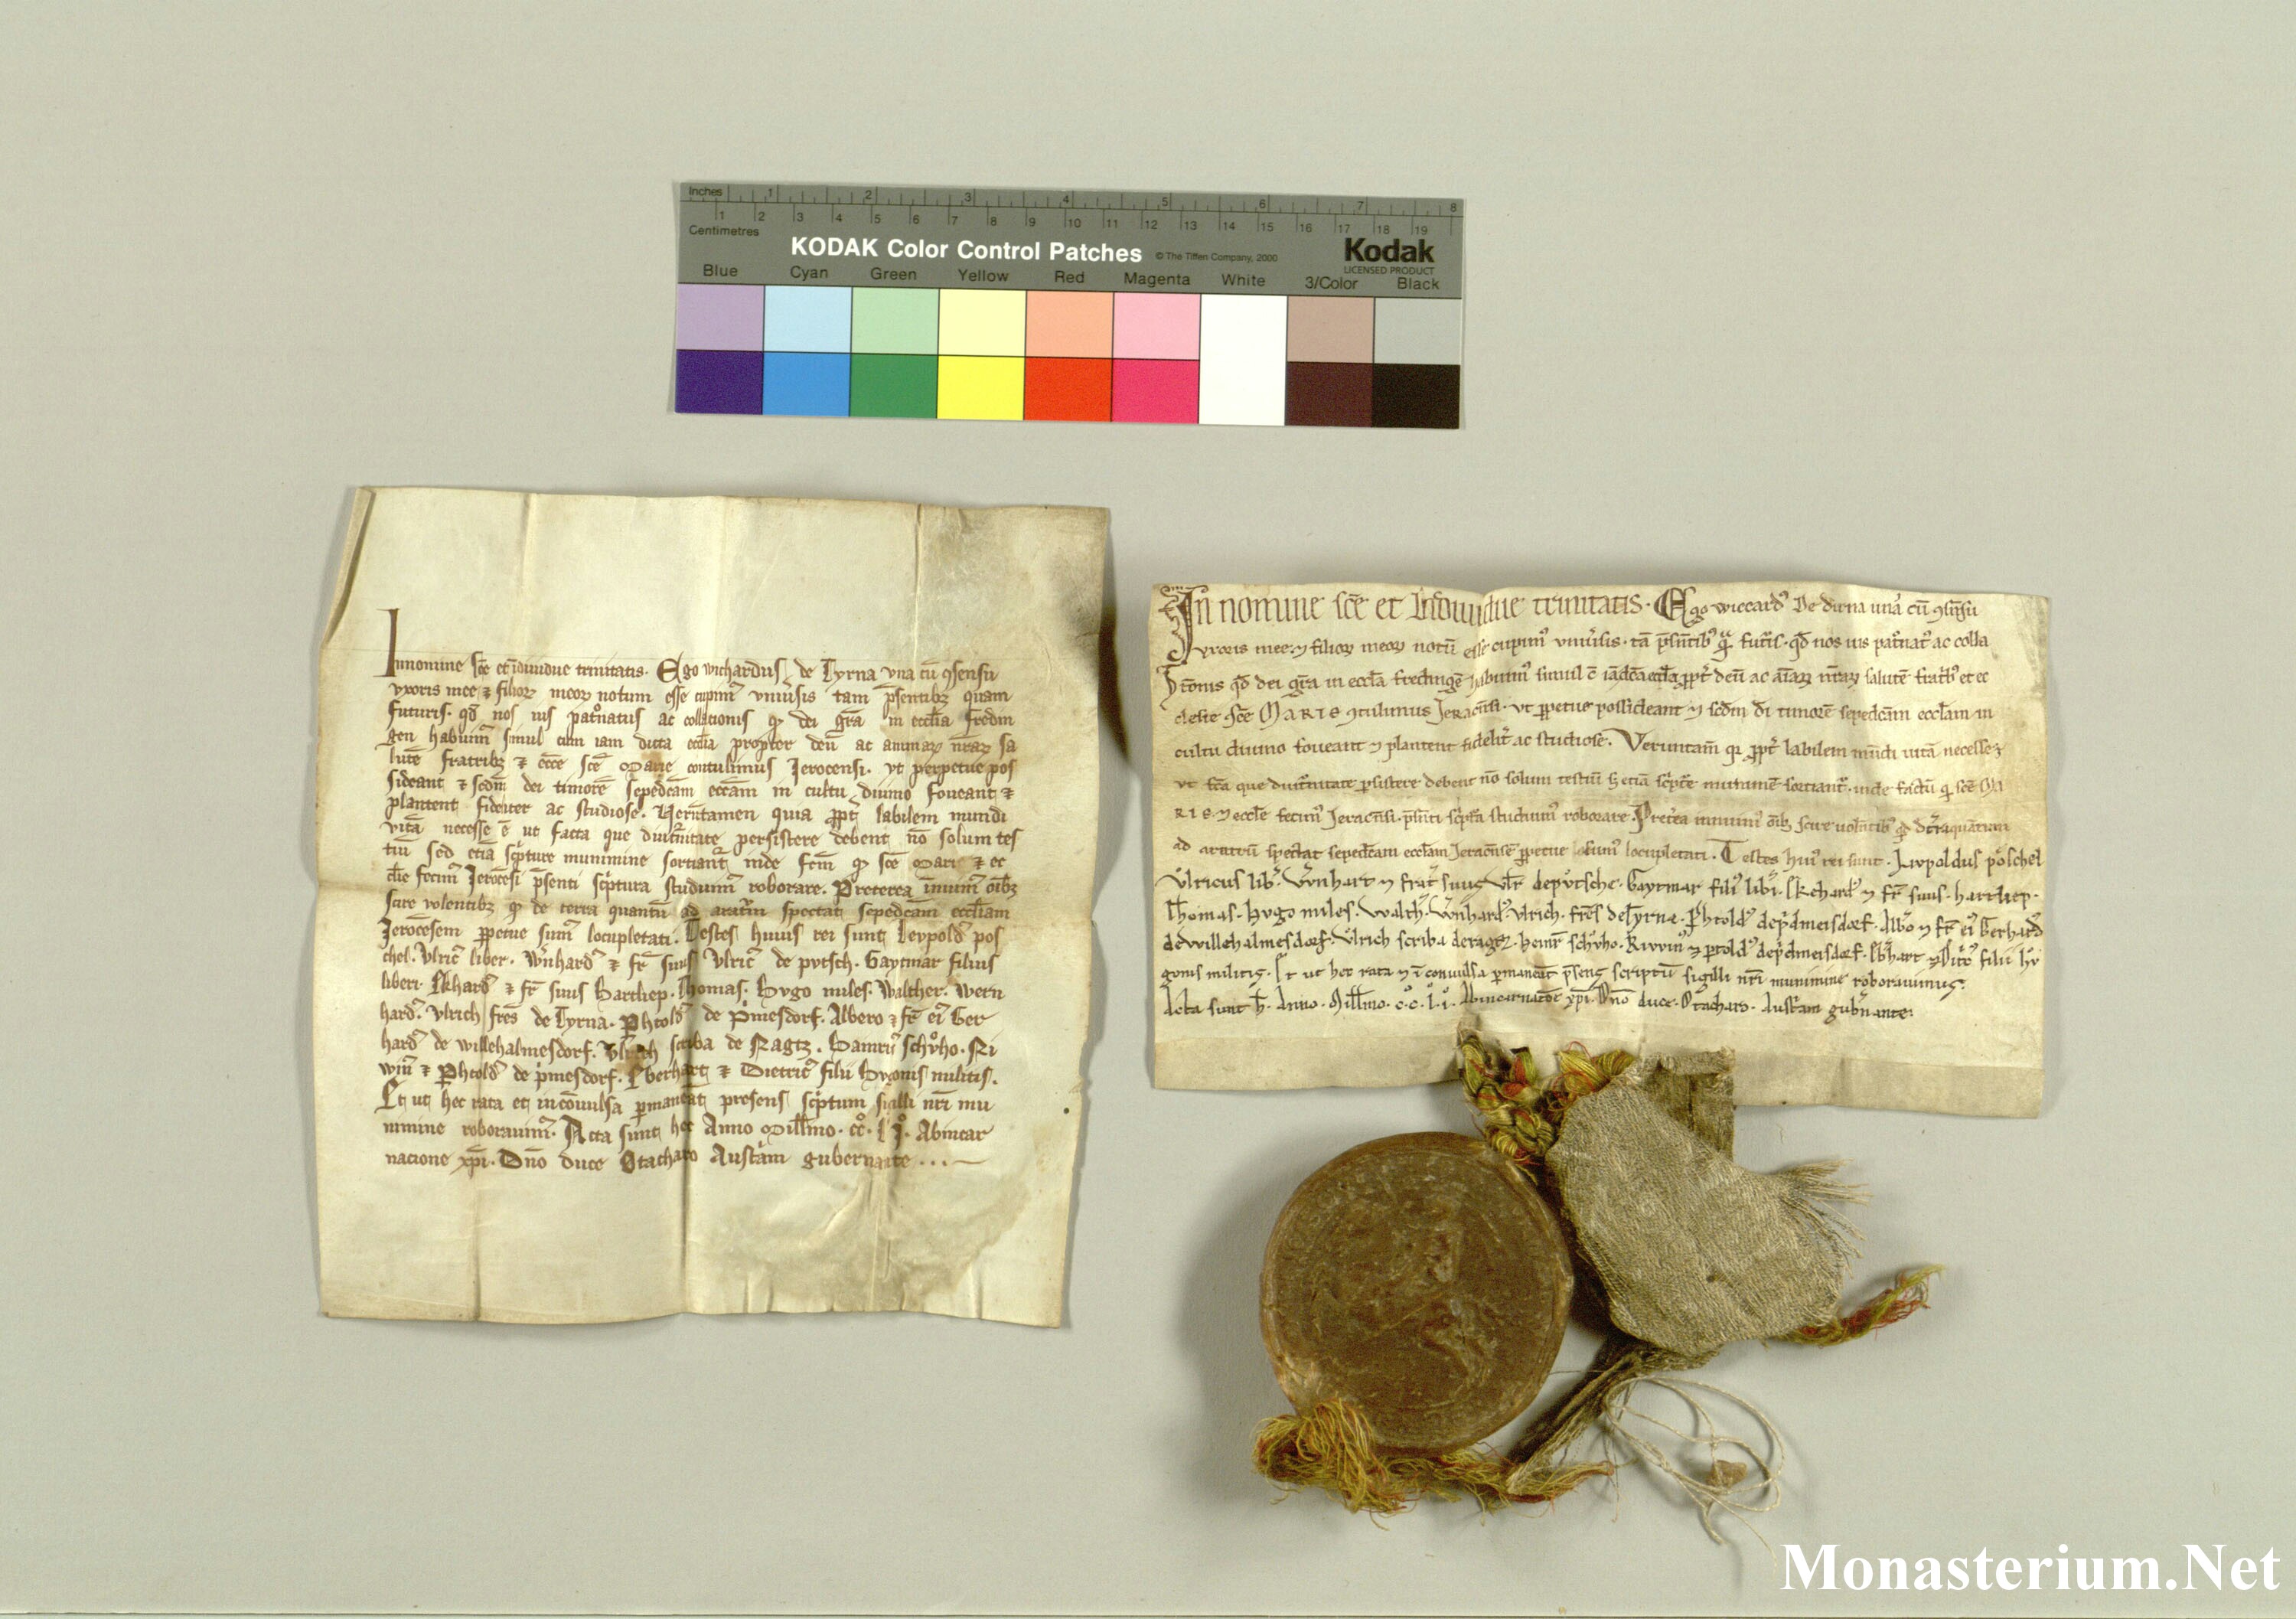 Inches 1 2 3 4 5 6 7 8
1 2 3 4 5 6 7 8 9 10 11 12 13 14 15 16 17 18 19
Centimetres
KODAK Color Control Patches © The Tiffen Company, 2000 Kodak
LICENSED PRODUCT
Blue Cyan Green Yellow Red Magenta White 3/Color Black
Innomine sc̄e et īdiuidue trinitatis. Ego wichardus de Tyrna vna cū ꝯsensu
vxoris mee ⁊ filioꝝ meoꝝ notum esse cupimꝰ vniu̓sis tam p̄sentibꝫ quam
futuris. qd̄ nos ius pat͛natus ac collationis ꝙ dei gr̄a in eccl̄ia fredin
gen habuimꝰ simul cum iam dicta eccl̄ia propter deū ac animaꝝ nr̄aꝝ sa
lutē fratribꝫ ⁊ ecc̄e sc̄e Marie contulimus Jerocensi. vt perpetue pos
sideant ⁊ scdm̄ dei timorē sepedc̄am ecc̄am in cultu diuino foueant ⁊
plantent fideliter ac studiose. Verūtamen quia ꝓpt̓ labilem mundi
vitā necesse ē ut facta que diuit̓nitate persistere debent nō solum tes
tiū sed etiā sc͛pture munimine sortiant᷑ inde fcm̄ ꝙ sc̄e Marie ⁊ ec
cl̄ie fecimꝰ Jerocēsi p̄senti sc͛ptura studuimꝰ roborare. Preterea innuimꝰ oībꝫ
scire volentibꝫ ꝙ de terra quantū ad aratrū spectat sepedcām eccl̄iam
Jerocēsem ꝑpetue sumꝰ locupletati. Testes huius rei sunt Leypoldꝰ pos
chel. Vlricꝰ liber. Wn̓hardꝰ ⁊ fr̄ suus Vlricꝰ de pvtsch. Gaytmar filius
liberi Ekhardꝰ ⁊ fr̄ suus Hartliep. Thomas. Hvgo miles. Walther. Wern
hardꝰ. Vlrich fr̄es de Tyrna. Phtoldꝰ de p̓mesdorf. Albero ⁊ fr̄ eiꝰ Ger
hardꝰ de willehalmesdorf. Vlrich scriba de Ragtz. Hainricꝰ schvͦho. Ri
winꝰ ⁊ Phtoldꝰ de p̓mesdorf. Eberhart ⁊ Dietricꝰ filii Hvgonis militis.
Et ut hec rata et incōuulsa ꝑmaneāt presens sc͛ptum sigilli nr̄i mu
nimine roborauimꝰ. Acta sunt hec Anno Mill̄mo. ccͦ. lͦ Iͦ. Abincar
nacione xp̄i. Dn̄o duce Otacharo Austām gubernante ... —
In nomine sc̄e et Indiuidue trinitatis. Ego wiccardꝰ De dirna una cū ꝯsn̄su
vxoris mee ⁊ filioꝝ meoꝝ notū esse cupimꝰ vniu̓sis. tā p̄sn̄tibꝰ qᵃ̄ futīs. qd̄ nos ius pat͛natꝰ ac colla
t̄onis qd̄ dei gr̄a in eccl̄a fredingē habuimꝰ simul c̄ iādc̄a eccl̄a ꝓpt̓ deū ac aīaꝝ nr̄aꝝ salutē frat͛bꝰ et ec
clesie sc̄e MARIE ꝯtulimus Jeracn̄si. vt ꝑpetue possideant ⁊ scd̄m dī timorē sepedcām eccl̄am in
cultu diuino foueant ⁊ plantent fidelit̓ ac studiose. Veruntam̄ qꝛ ꝓpt̓ labilem mūdi uitā necesse ē
vt fc̄a que diuit̓nitate ꝑsistere debent nō solum testiū s; etiā sc͛pte̓ munimē sortiant᷑. inde factū ꝙ sc̄e MA
RIE. ⁊ eccl̄e fecimꝰ Jeracn̄si. p̄sn̄ti sc͛pta̓ studuimꝰ roborare. Prete̓a innuimꝰ oīb; scire uoln̄tibꝰ ꝙ dt̓ra quātum
ad aratrū spectat sepedcām eccl̄am Jeracn̄sē ꝑpetue sumꝰ locupletati. Testes huiꝰ rei sunt. Livpoldus poͤschel
Vlricus libꝰ. Wn̓hart ⁊ frat̓ suus Vlr̄ depvͤtsche. Gaytmar filiꝰ libi̓. Ekehardꝰ ⁊ fr̄ suus. hartliep.
Thomas. Hvgo miles. Walth̓. Wn̓hardꝰ. Vlrich. fr̄es deTyrna. Phtoldꝰ dep̓dmeisdorf. Albo̓ ⁊ fr̄ eiꝰ Gerhardꝰ
dewillehalmesdorf. Vlrich scriba deragez. heinr̄ schvͦho. Riwinꝰ ⁊ ꝑtoldꝰ dep̓dmeisdorf. Ebh̓art ⁊ Ditr̓ filii hv
gonis militis. Et ut hec rata ⁊ ī conuulsa ꝑmaneāt p̄sens scriptū sigilli nr̄i munimine roborauimus.
Acta sunt h̄. Anno. Mill̄mo. cͦcͦ. lͦ. iͦ. Abincarnat̄oē xp̄i. Dn̄o duce. Otacharo. Austām gubn̓ante.
Monasterium.Net